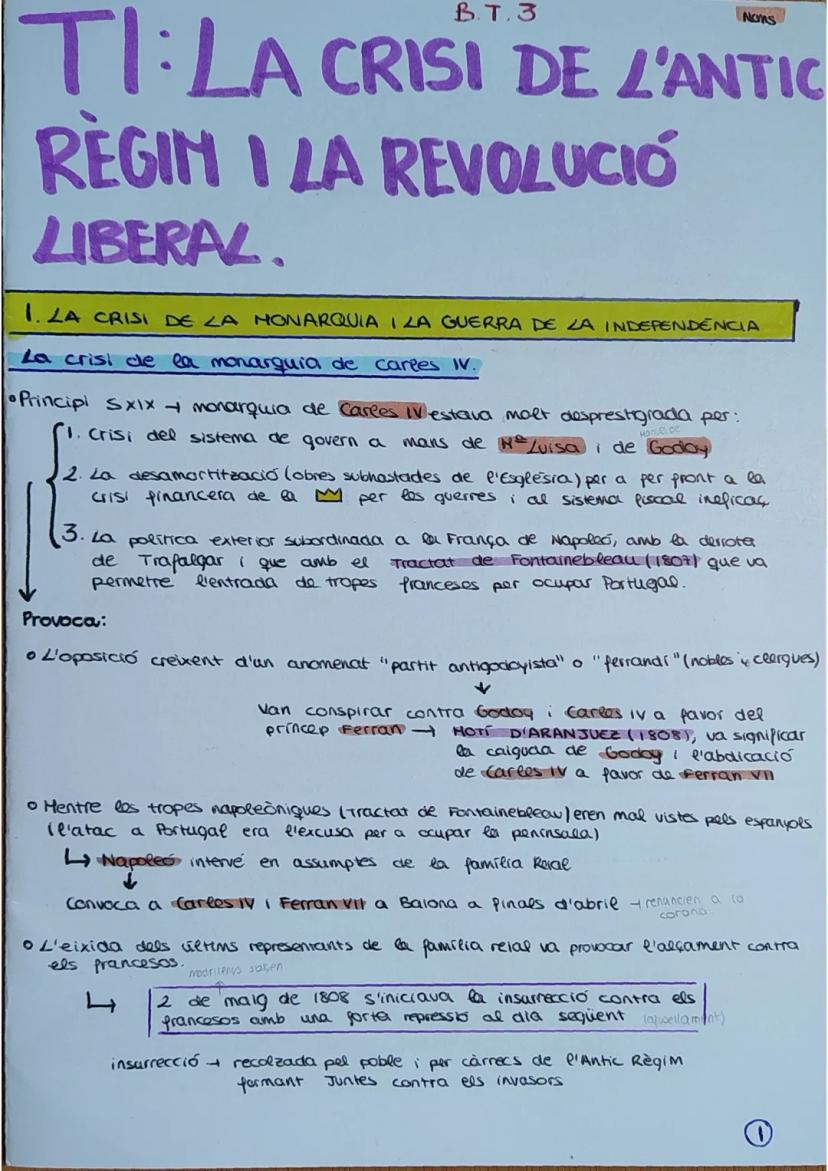 B.T.3
Noms
T1: LA CRISI DE L'ANTIC
RÈGIM I LA REVOLUCIÓ
LIBERAL.
1. LA CRISI DE LA MONARQUIA I LA GUERRA DE LA INDEPENDÈNCIA
La crisi de la monarquia de Carles IV.
•Principi SXIX → monarquia de Carles IV estava molt desprestigiada per:
1. Crisi del sistema de govern a mans de Mª Luisa i de Godoy
Manuel de
2. La desamortització (obres subhastades de l'Església) per a fer front a la
crisi financera de la 👑 per les guerres i al sistema fiscal ineficaç
3. La política exterior subordinada a la França de Napoleó, amb la derrota
de Trafalgar i que amb el Tractat de Fontainebleau (1807) que va
permetre l'entrada de tropes franceses per ocupar Portugal.
Provoca:
• L'oposició creixent d'un anomenat "partit antigodoyista" o "ferrandí" (nobles i clergues)
↓
Van conspirar contra Godoy i Carles IV a favor del
príncep Ferran → MOTÍ D'ARANJUEZ (1808), va significar
la caiguda de Godoy i l'abdicació
de Carles IV a favor de Ferran VII
• Mentre les tropes napoleòniques (Tractat de Fontainebleau) eren mal vistes pels espanyols
(l'atac a Portugal era l'excusa per a ocupar la península)
↳ Napoleó intervé en assumptes de la família Reial
↓
Convoca a Carles IV i Ferran VII a Baiona a finals d'abril → renuncien a la
corona.
• L'eixida dels últims representants de la família reial va provocar l'alçament contra
els francesos.
madrilenys salen
↳ 2 de maig de 1808 s'iniciava la insurrecció contra els
francesos amb una forta repressió al dia següent (afusellament)
insurrecció → recolzada pel poble i per càrrecs de l'Antic Règim
formant Juntes contra els invasors
1